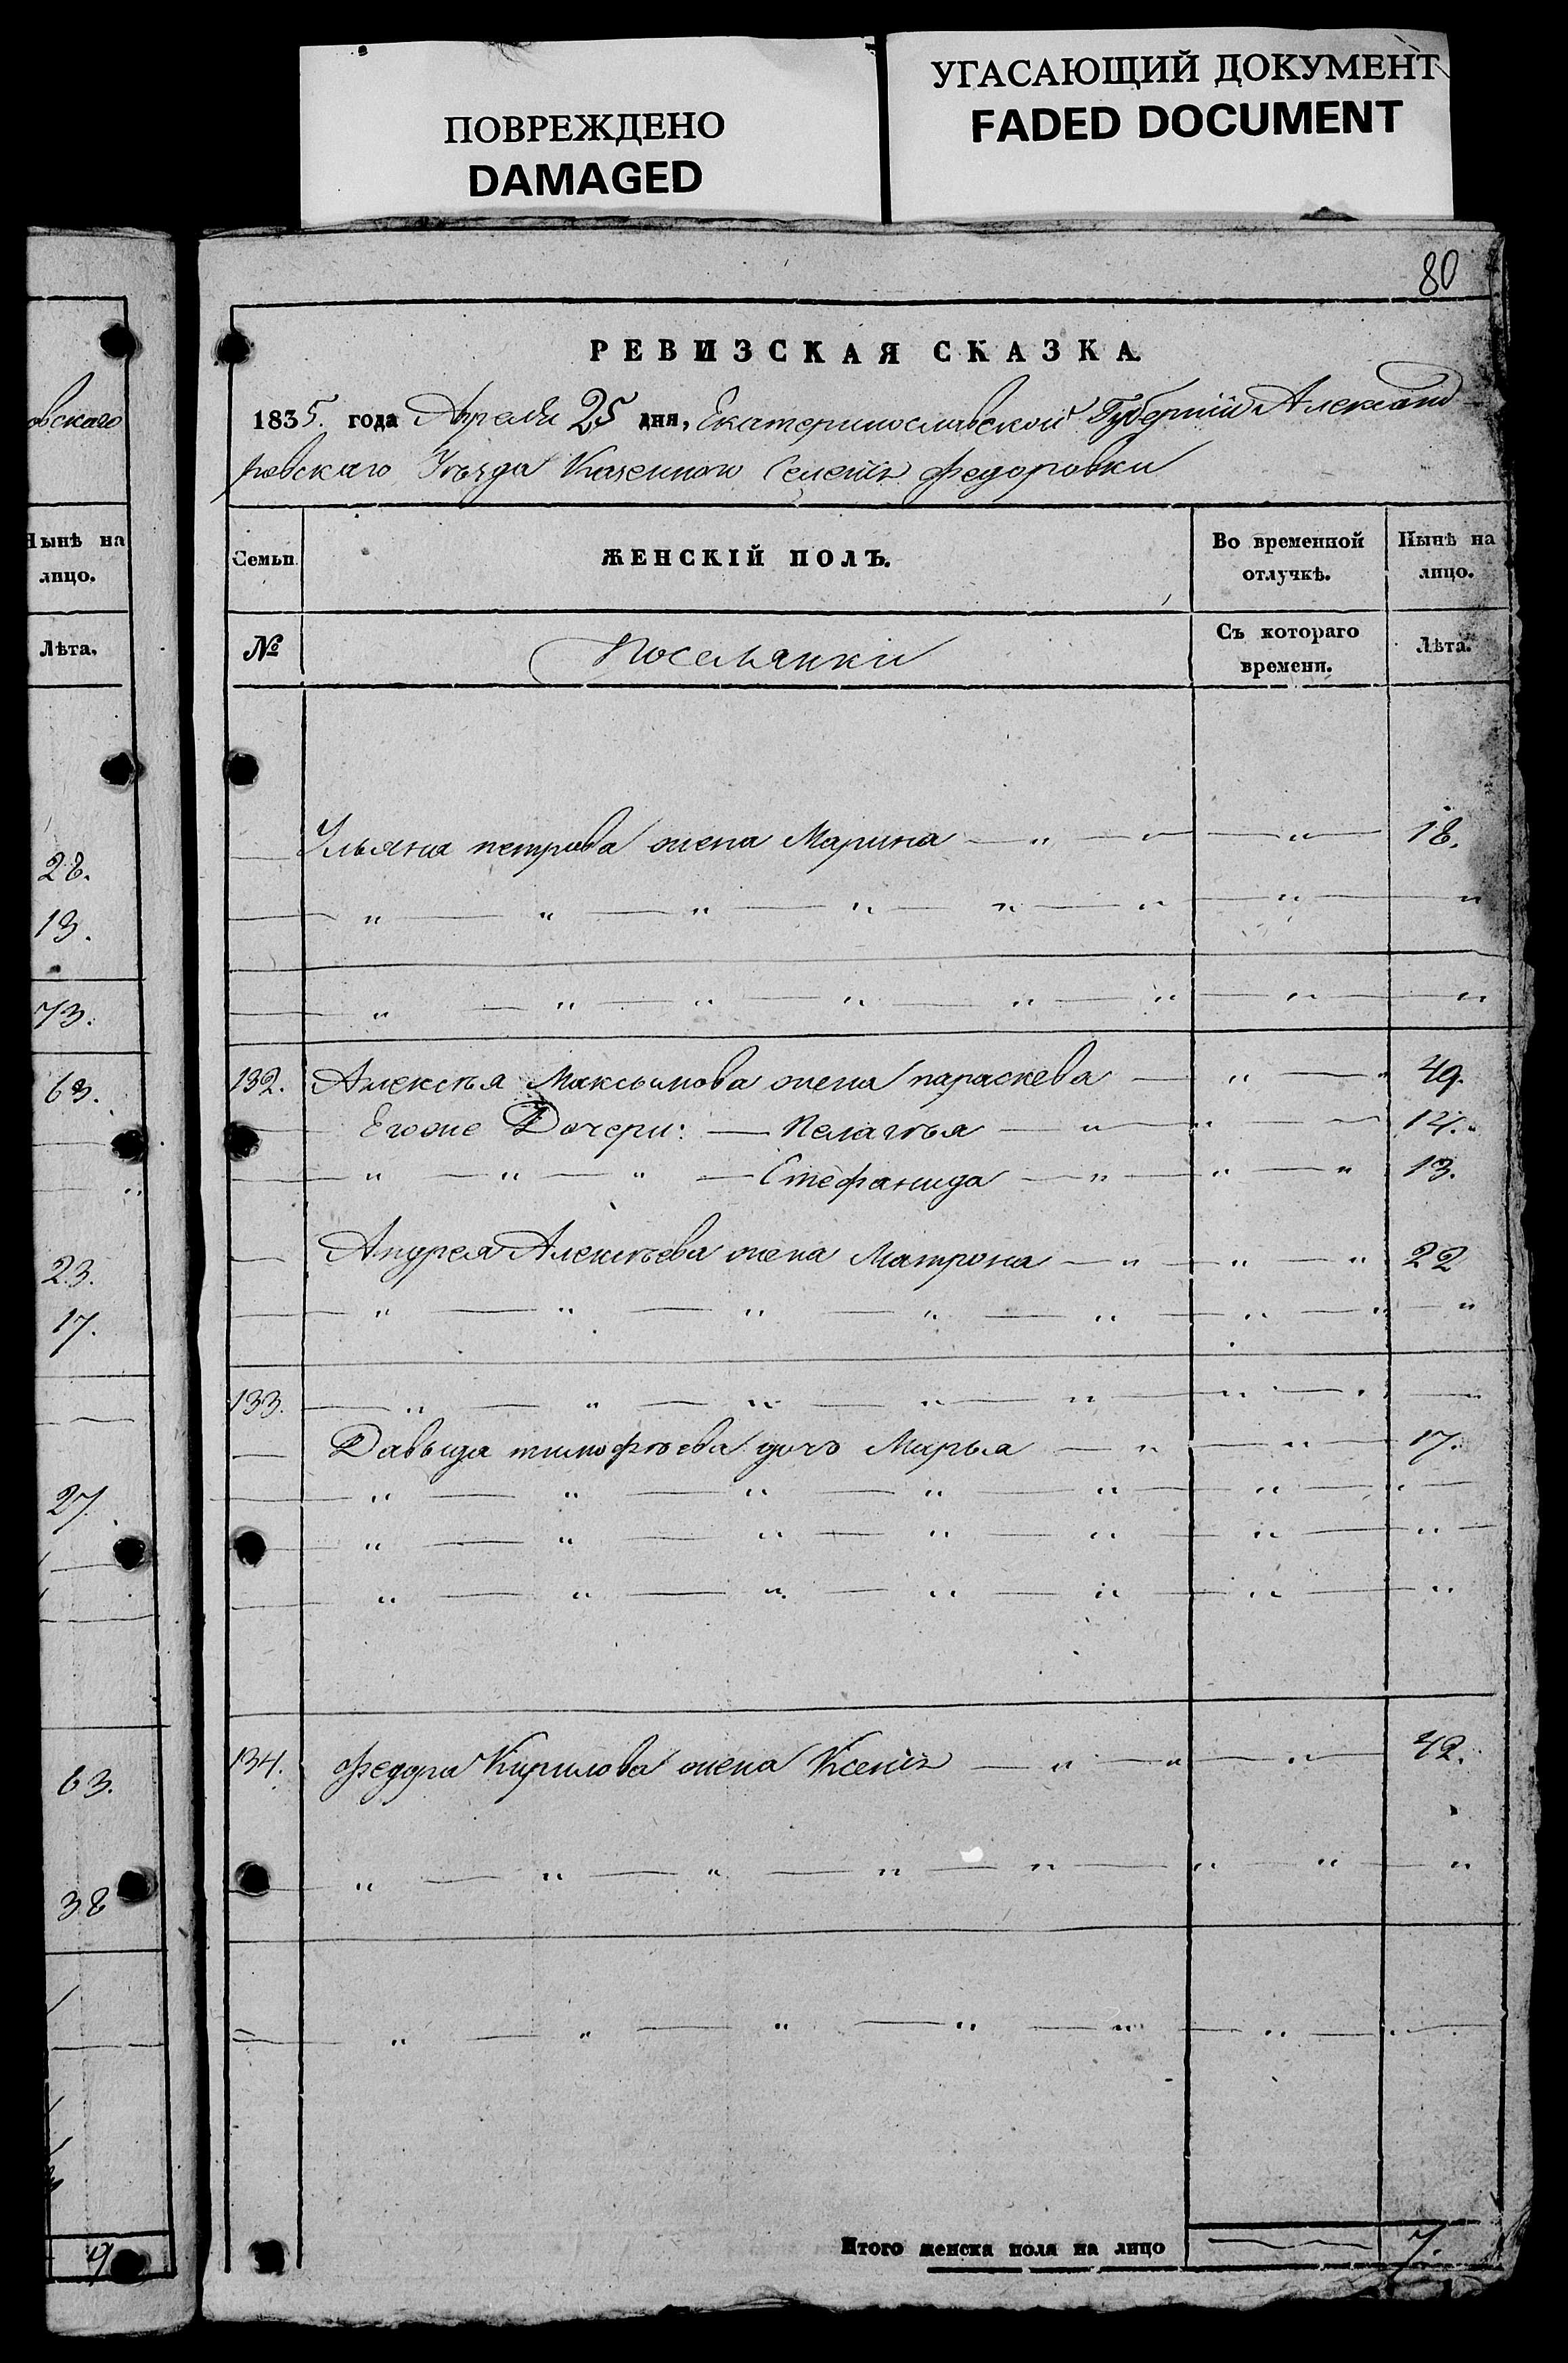 ПОВРЕЖДЕНО
DAMAGED
УГАСАЮЩИЙ ДОКУМЕНТ
FADED DOCUMENT
80
РЕВИЗСКАЯ СКАЗКА.
1835. года Апреля 25 дня, Екатеринославской Губерніи Александ
ровскаго Уѣзда Казенного Селенія Федоровки
Семьи. ЖЕНСКІЙ ПОЛЪ. Во временной отлучкѣ. Нынѣ на лицо.
№ Поселянки Съ котораго времени. Лѣта.
Ульяна петрова жена Марина — „ — „ — „ — 18.
— „ — „ — „ — „ — „ — „ — „ — „
— „ — „ — „ — „ — „ — „ — „ — „
132. Алексѣя Максимова жена параскева — „ — „ 49.
Егоже Дочери: — Пелагѣя — „ — „ — 14.
— „ — „ — „ — Стефанида — „ — „ — „ 13.
— Андрея Алексѣева жена Матрона — „ — „ — „ 22
— „ — „ — „ — „ — „ — „ — „ — „
133. — „ — „ — „ — „ — „ — „ — „ — „
— Давыда тимофѣева дочь Марья — „ — „ — 17.
— „ — „ — „ — „ — „ — „ — „ —
— „ — „ — „ — „ — „ — „ — „ —
— „ — „ — „ — „ — „ — „ — „
134. Федора Кирилова жена Ксенія — „ — „ — „ — 42.
— „ — „ — „ — „ — „ — „ — „ — „
— „ — „ — „ — „ — „ — „ — „ —
Итого женска пола на лицо — 7.
овскаго
Нынѣ на
лицо.
Лѣта.
28.
13.
73.
63.
„
23.
17.
27.
63.
38
9